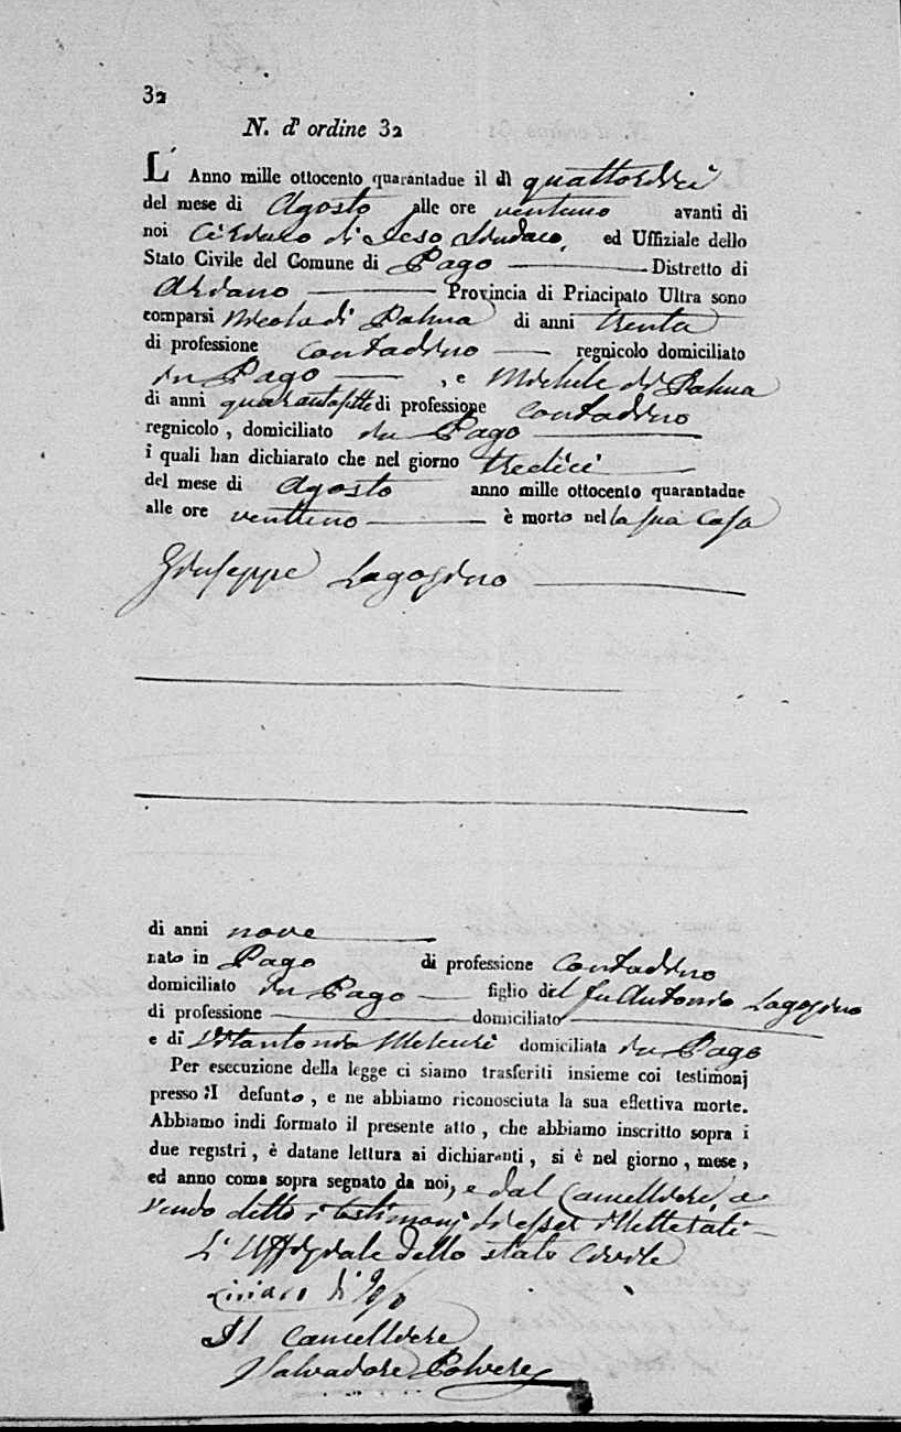 32
N. d' ordine 32
L' Anno mille ottocento quarantadue il dì quattordici
del mese di Agosto alle ore ventuno avanti di
noi Ciriaco di Sindaco, ed Uffiziale dello
Stato Civile del Comune di Pago Distretto di
Ariano Provincia di Principato Ultra sono
comparsi Nicola di Palma di anni trenta
di professione contadino regnicolo domiciliato
in Pago , e Michele di Palma
di anni quarantasette di professione contadino
regnicolo , domiciliato in Pago
i quali han dichiarato che nel giorno tredici
del mese di Agosto anno mille ottocento quarantadue
alle ore ventuno è morto nella sua casa
Giuseppe Lagozino
di anni nove
nato in Pago di professione contadino
domiciliato in Pago figlio del fu Antonio Lagozino
di professione domiciliato
e di Vitantonia domiciliata in Pago
Per esecuzione della legge ci siamo trasferiti insieme coi testimonj
presso il defunto , e ne abbiamo riconosciuta la sua effettiva morte.
Abbiamo indi formato il presente atto , che abbiamo inscritto sopra i
due registri , è datane lettura ai dichiaranti , si è nel giorno , mese ,
ed anno come sopra segnato da noi, e dal Cancelliere, a-
vendo detto i testimonj di esser illetterati
L' Uffiziale dello stato Civile
Ciriaco di
Il Cancelliere
Salvadore Polvere